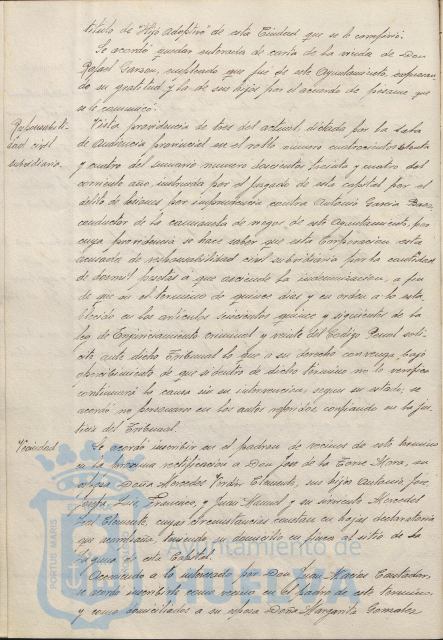 título de "Hijo adoptivo" de esta Ciudad que se le confirió.
Se acordó quedar enterados de carta de la viuda de Don
Rafael Garzon, empleado que fue de este Ayuntamiento, expresan-
do su gratitud y la de sus hijos por el acuerdo de pésame que
se le comunicó.
Responsabili-
dad civil
subsidiaria.
Vista providencia de tres del actual, dictada por la Sala
de audiencia provincial en el rollo número cuatrocientos
y cuatro del sumario número doscientos treinta y cuatro del
corriente año, instruida por el juzgado de esta capital por el
delito de lesiones por imprudencia contra Antonio García
conductor de la camioneta de riegos de este Ayuntamiento, por
cuya providencia se hace saber que esta Corporación está
acusada de responsabilidad civil subsidiaria por la cantidad
de dos mil pesetas a que asciende la indemnización, a fin
de que en el término de quince días y en orden a lo esta-
blecido en los artículos seiscientos quince y siguientes de la
ley de Enjuiciamiento criminal y veinte del Código Penal soli-
cite ante dicho Tribunal lo que a su derecho convenga bajo
apercibimiento de que si dentro de dicho término no lo verifica
continuará la causa sin su intervención, según su estado; se
acordó no personarse en los autos referidos, confiando en la jus-
ticia del Tribunal.
Vecindad
Se acordó inscribir en el padrón de vecinos de este término
en la próxima rectificación a Don José de la Torre Mora, su
esposa Doña Mercedes Clemente, sus hijos Antonio, José,
Josefa, Luis, Francisco, y Juan Manuel y su sirviente Mercedes
Clemente, cuyas circunstancias constan en hojas declaratoria
que acompaña, teniendo su domicilio en finca al sitio de la
de esta Capital.
Accediendo a lo interesado por Don Juan Macías Contador,
se acordó inscribirle como vecino en el padrón de este término
y como domiciliados a su esposa Doña Margarita Gonzalez
PORTUS MARIS
Ayuntamiento de
HUELVA